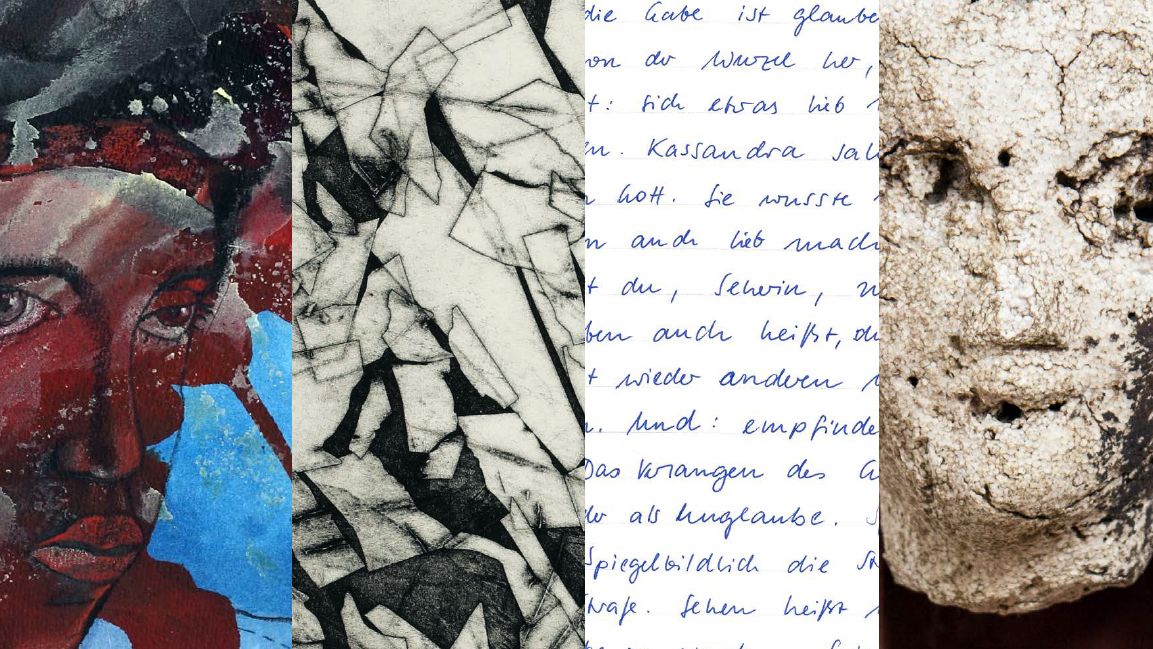 die Gabe ist glaube
on der Wurzel her,
t: sich etwas lieb
en. Kassandra sah
Gott. Sie wusste
auch lieb mach
t du, Seherin,
ben auch heißt, du
t wieder anderen
Und: empfinde
Das Verlangen des G
der als Unglaube. S
Spiegelbildlich die St
Strafe. Sehen heißt